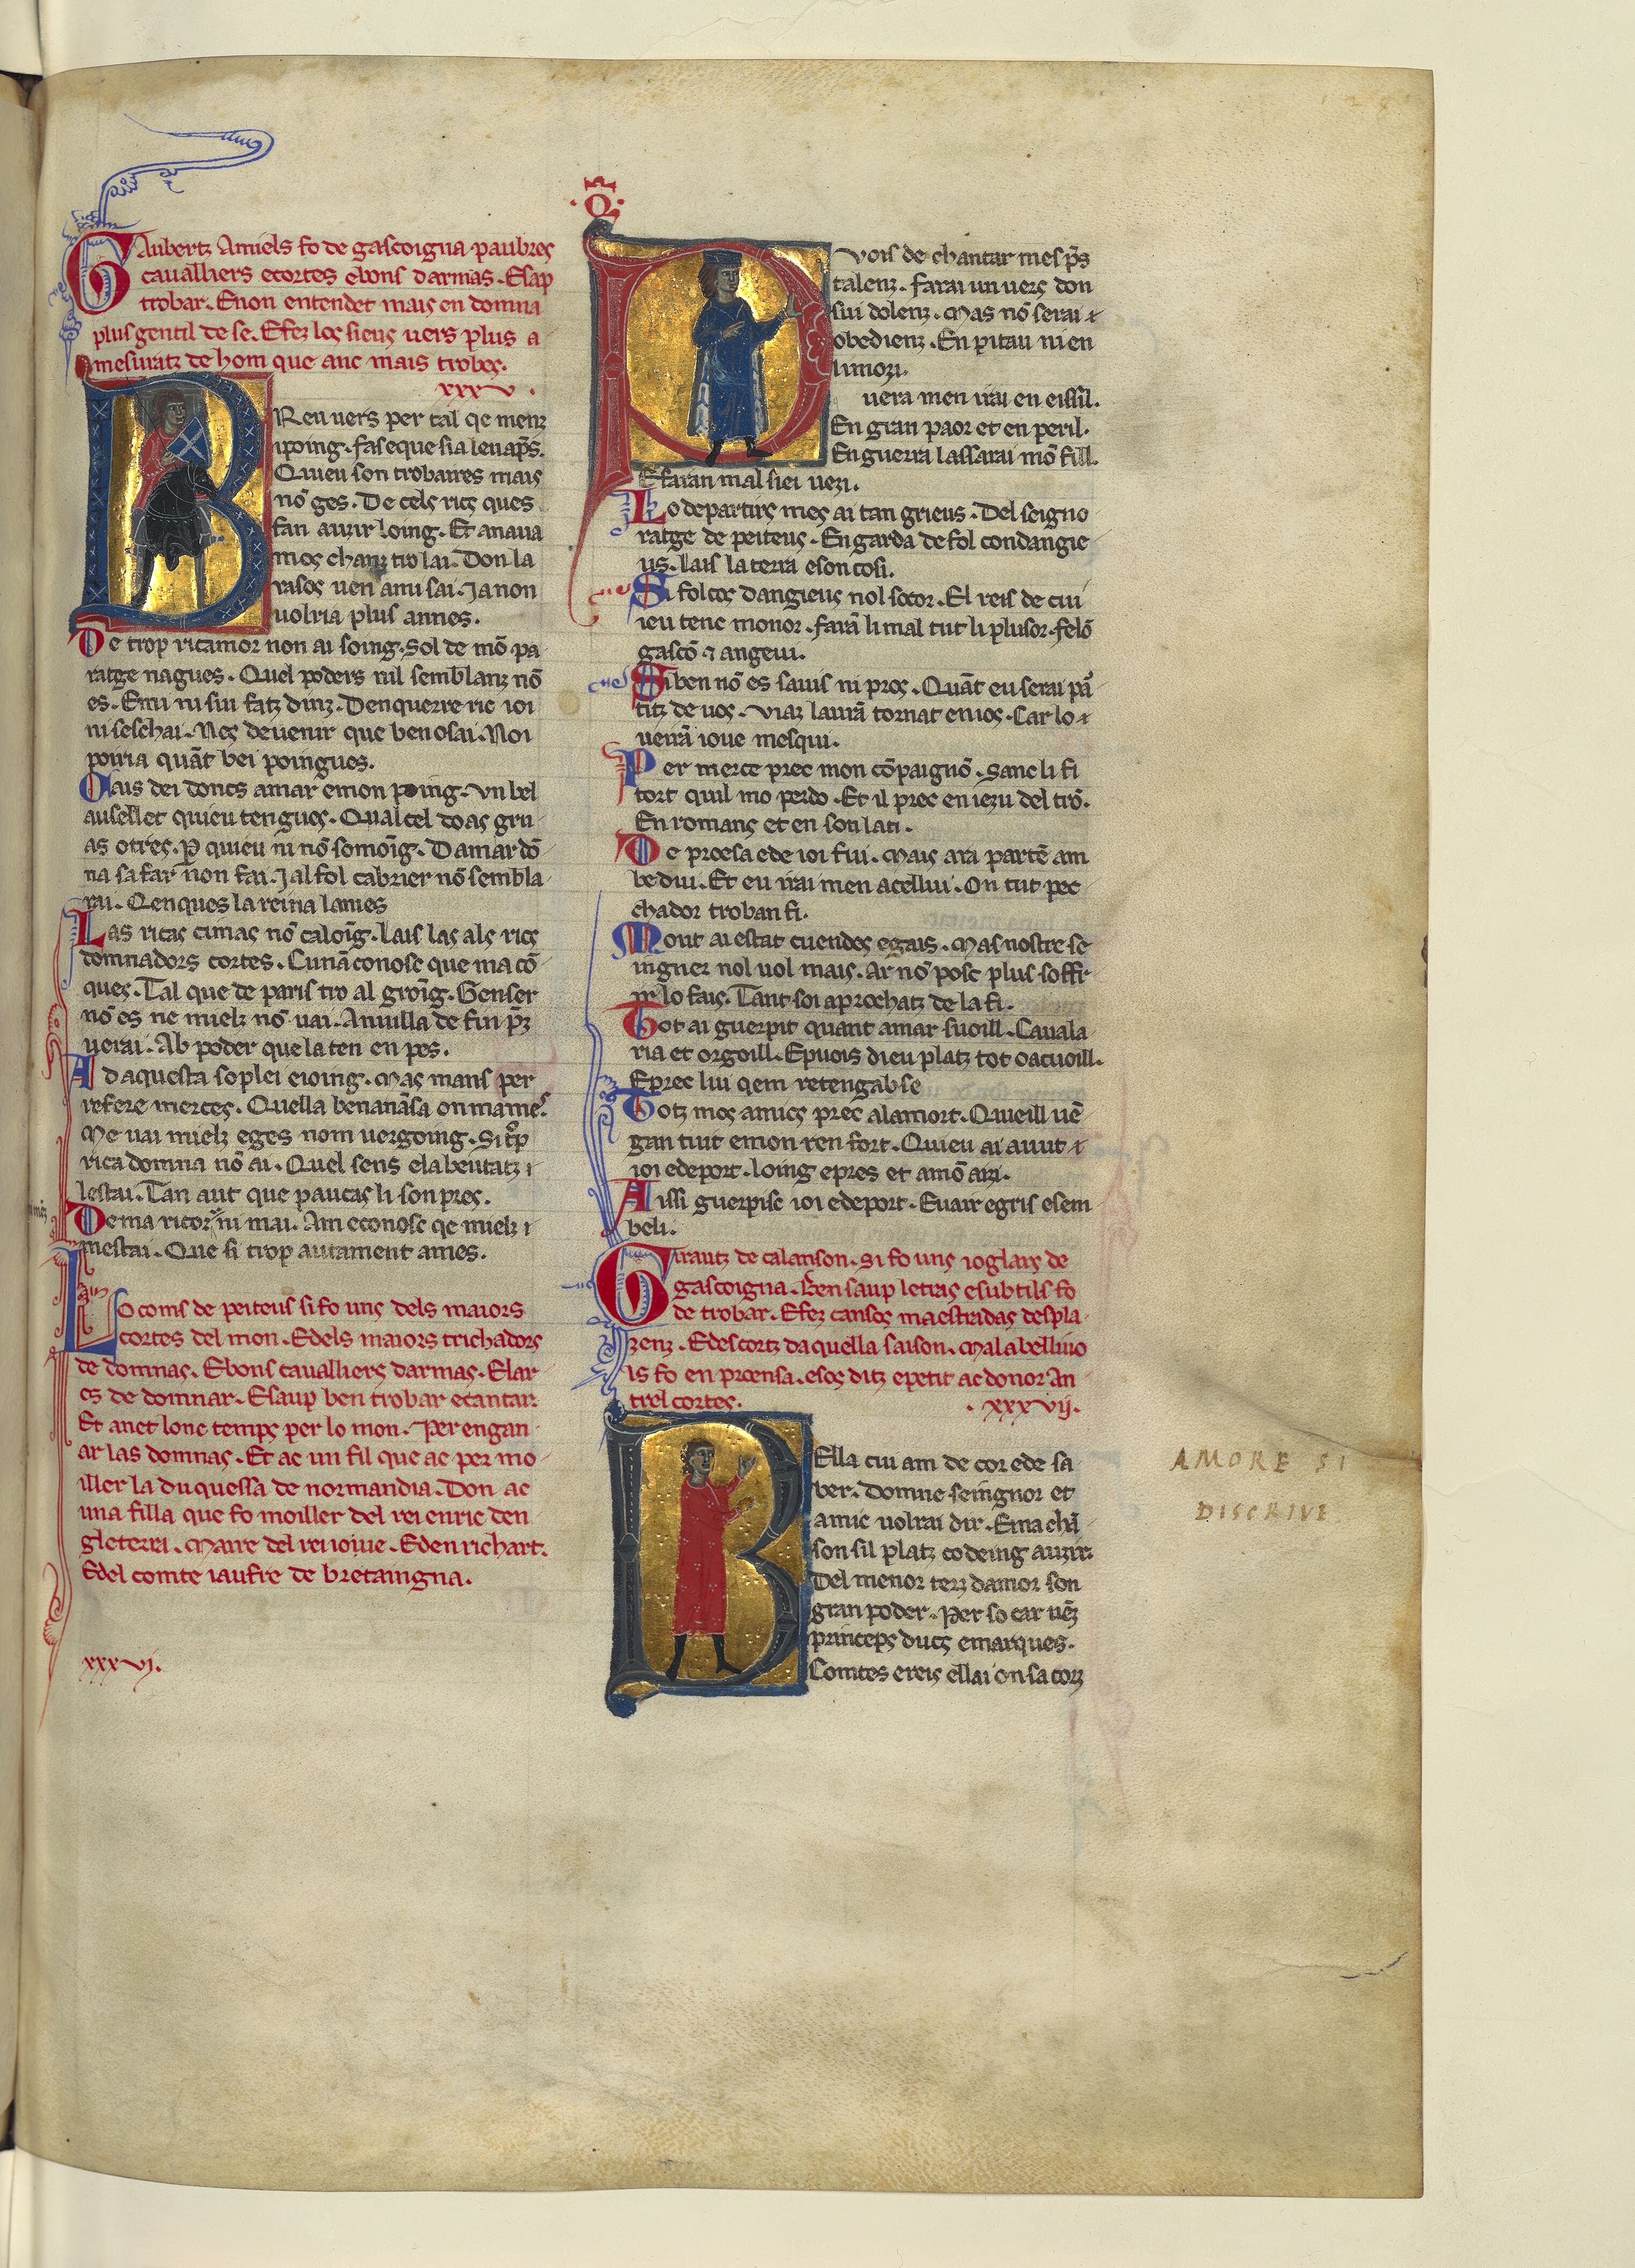 Gaubertz Amiels fo de gascoigna paubres
caualliers ecortes ebons darmas. Esap
trobar. Enon entendet mais en domna
plus gentil de se. Efez los sieus uers plus a
mesuratz de hom que anc mais trobes.
xxxv.
BReu uers per tal qe menz
ipoing. fas eque sia leu aps̄.
Quieu son trobaires mais
nō ges. De cels rics ques
fan auzir loing. Et anaua
mos chanz tro lai. Don la
rasos uen anu sai. Ja non
uolria plus annes.
De trop ricamor non ai soing. Sol de mō pa
ratge nagues. Quel poders nil semblanz nō
es. Enu ni sui fatz dinz. Denquerre ric ioi
ni seschai. Nes deuenir que ben osai. Noi
poiria quāt bei poingues.
Mais dei doncs amar emon poing. Vn bel
ausellet quieu tengues. Qualcel doas gru
as otres. P̄ quieu ni nō somoīg. Damar dō
na sa far non fai. Jal fol cabrier nō sembla
rai. Qenques la reina lames
Las ricas cimas nō caloīg. Lais las als rics
domnadors cortes. Cunā conosc que ma cō
ques. Tal que de paris tro al groīg. Genser
nō es ne mielz nō uai. Amilla de fin prz̄
uerai. Ab poder que la ten en pes.
Ad aquesta soplei eioing. Mas mans per
refere merces. Quella benanāsa on mames.
Me uai mielz eges nom uergoing. Si trop
rica domna nō ai. Quel sens ela beutatz i
lestai. Tan aut que paucas li son pres.
De ma ricor ni mai. Am econosc qe mielz i
mestai. Que si trop autament ames.
Lo coms de peiteus si fo uns dels maiors
cortes del mon. Edels maiors trichadors
de domnas. Ebons caualliers darmas. Elar
cs de domnar. Esaup ben trobar ecantar.
Et anet lonc temps per lo mon. Per engan
ar las domnas. Et ac un fil que ac per mo
iller la duquessa de normandia. Don ac
una filla que fo moiller del rei enric den
gleterra. Maire del rei ioiue. Eden richart.
Edel comte iaufre de bretaingna.
xxxvi.
PVois de chantar mes ps̄
talenz. Farai un uers don
sui dolenz. Mas nō serai
obedienz. En pitau ni en
limozi.
uera men irai en eissil.
En gran paor et en peril.
En guerra lassarai mō fill.
Efaran mal siei uezi.
Lo departirs mes ai tan grieus. Del seigno
ratge de peiteus. En garda de fol condangie
us. Lais la terra eson cosi.
Si folcos dangieus nol socor. El reis de cui
ieu tenc monor. Farā li mal tut li plusor. felō
gascō 7 angeui.
Si ben nō es sauis ni pros. Quāt eu serai pa
titz de uos. Viaz laurā tornat en ios. Car lo
ueirā ioue mesqui.
Per merce prec mon cōpaignō. Sanc li fi
tort quil mo perdo. Et il prec en iezu del trō.
En romans et en son lati.
De proesa ede ioi fui. Mais ara partē am
bedui. Et eu irai men acellui. On tut pec
chador troban fi.
Mout ai estat cuendes egais. Mas nostre se
ingner nol uol mais. Ar nō posc plus soffr
ir lo fais. Tant soi aprochatz de la fi.
Tot ai guerpit quant amar suoill. Cauala
ria et orgoill. Epuois dieu platz tot oacuoill.
Eprec lui qem retengab se
Totz mos amics prec alamort. Queill uē
gan tuit emon ren fort. Quieu ai auut
ioi edeport. loing epres et amō aizi.
Aissi guerpisc ioi edeport. Euair egris esem
beli.
Girautz de calanson. Si fo uns ioglars de
gascoigna. Ben saup letras esubtils fo
de trobar. Efez cansos maestradas despla
zenz. Edescortz daquella saison. Malabelliuo
ls fo en proensa. esos ditz epetit ac donor An
trel cortes.
.xxxvij.
BElla cui am de cor ede sa
ber. Domne seingnor et
amic uolrai dir. Ema chā
son sil platz co deing auzir.
Del menor terz damor son
gran poder. Per so car uēz
princeps ducs emarques.
Comtes ereis ellai on sa corz
AMORE SI
DISCRIVE